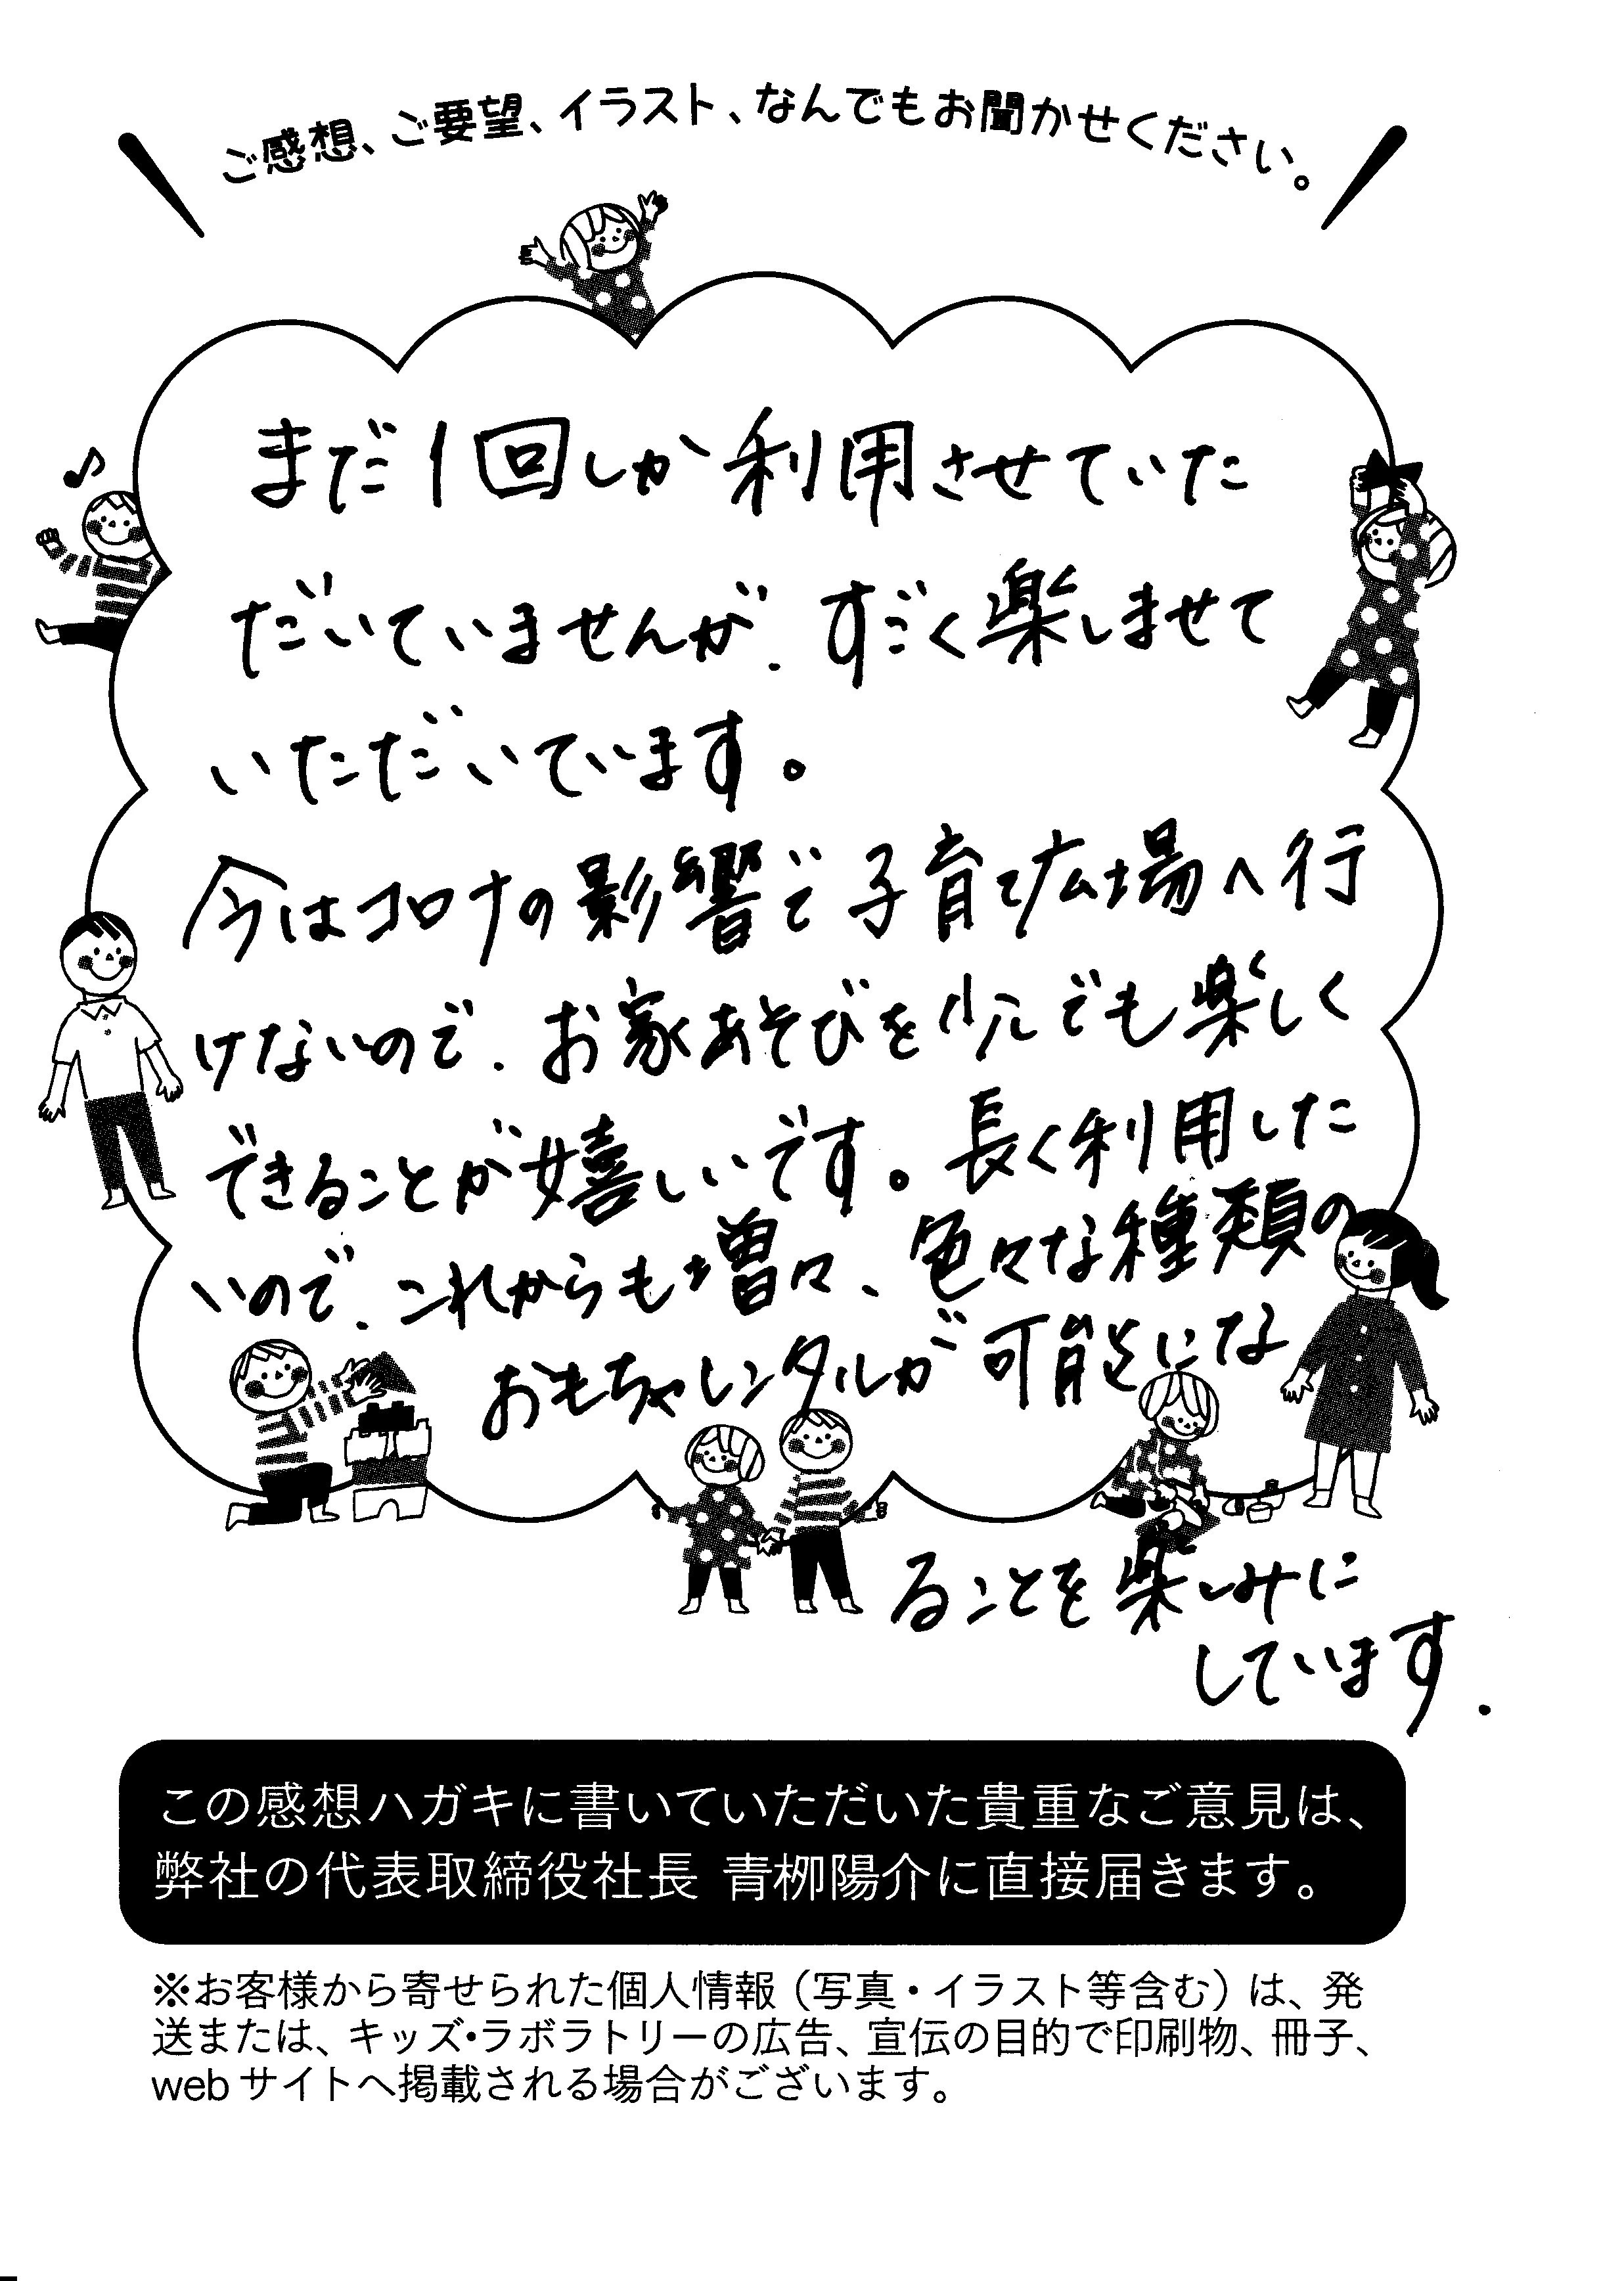 ご感想、ご要望、イラスト、なんでもお聞かせください。
まだ1回しか利用させていた
だいていませんが、すごく楽しませて
いただいています。
今はコロナの影響で子育て広場へ行
けないので、お家あそびを少しでも楽しく
できることが嬉しいです。長く利用した
いので、これからも増々、色々な種類の
おもちゃレンタルが可能にな
ることを楽しみに
しています.
この感想ハガキに書いていただいた貴重なご意見は、
弊社の代表取締役社長 青栁陽介に直接届きます。
※お客様から寄せられた個人情報（写真・イラスト等含む）は、発
送または、キッズ・ラボラトリーの広告、宣伝の目的で印刷物、冊子、
webサイトへ掲載される場合がございます。